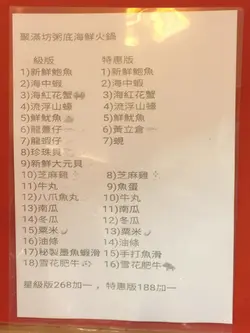 聚滿坊粥底海鮮火鍋
級版 特惠版
1)新鮮鮑魚 1)新鮮鮑魚
2)海中蝦 2)海中蝦
3)海紅花蟹 3)海紅花蟹
4)流浮山蠔 4)流浮山蠔
5)鮮魷魚 5)鮮魷魚
6)龍躉仔 6)黃立倉
7)龍蝦仔 7)蜆
8)珍珠貝
9)新鮮大元貝
10)芝麻雞 8)芝麻雞
11)牛丸 9)魚蛋
12)八爪魚丸 10)牛丸
13)南瓜 11)南瓜
14)冬瓜 12)冬瓜
15)粟米 13)粟米
16)油條 14)油條
17)秘製墨魚蝦滑 15)手打魚滑
18)雪花肥牛 16)雪花肥牛
星級版268加一，特惠版188加一